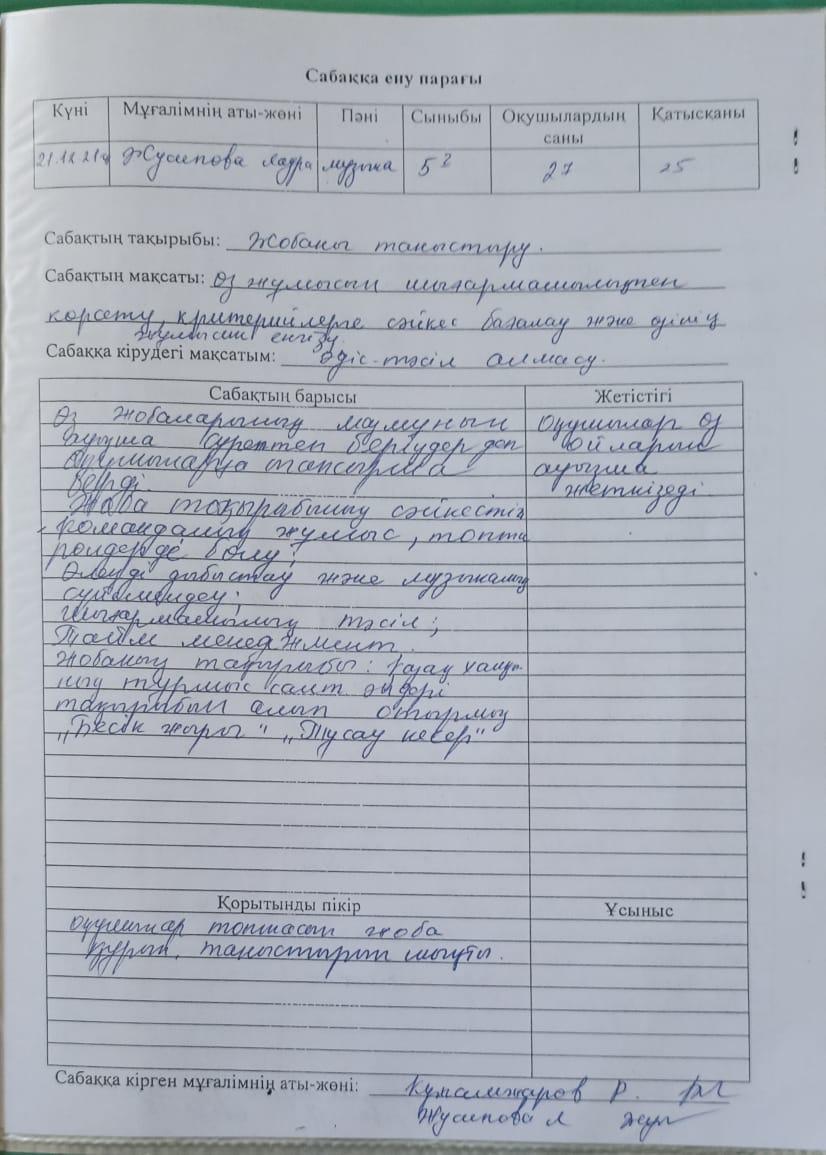 Сабаққа ену парағы
Күні Мұғалімнің аты-жөні Пәні Сыныбы Оқушылардың саны Қатысқаны
21.12.21ж Жусипова Лаура музыка 5 27 25
Сабақтың тақырыбы: Жобаны таныстыру.
Сабақтың мақсаты: Өз жұмысын шығармашылықпен
көрсету, критерийлерге сәйкес бағалау және өзінің
жұмысын енгізу.
Сабаққа кірудегі мақсатым: Әдіс-тәсіл алмасу.
Сабақтың барысы Жетістігі
Өз жобаларының мазмұнын оқушылар өз
ауызша суреттеп беріңдер деп ойларын
оқушыларға тапсырма ауызша
берді жеткізеді.
Жоба тақырабының сәйкестігі
командалық жұмыс, топта
рөлдерде бөлу;
Өлеңді дыбыстау және музыкалық
сүйемелдеу;
шығармашылық тәсіл;
Тайм менеджмент.
жобаның тақырыбы: қазақ халқы-
ның тұрмыс салт әндері
тақырыбын алып отырмыз
„Бесік жыры" „Тұсау кесер"
Қорытынды пікір Ұсыныс
оқушылар топтасып жоба
құрып, таныстырып шықты.
Сабаққа кірген мұғалімнің аты-жөні: Р.
Жусипова Л